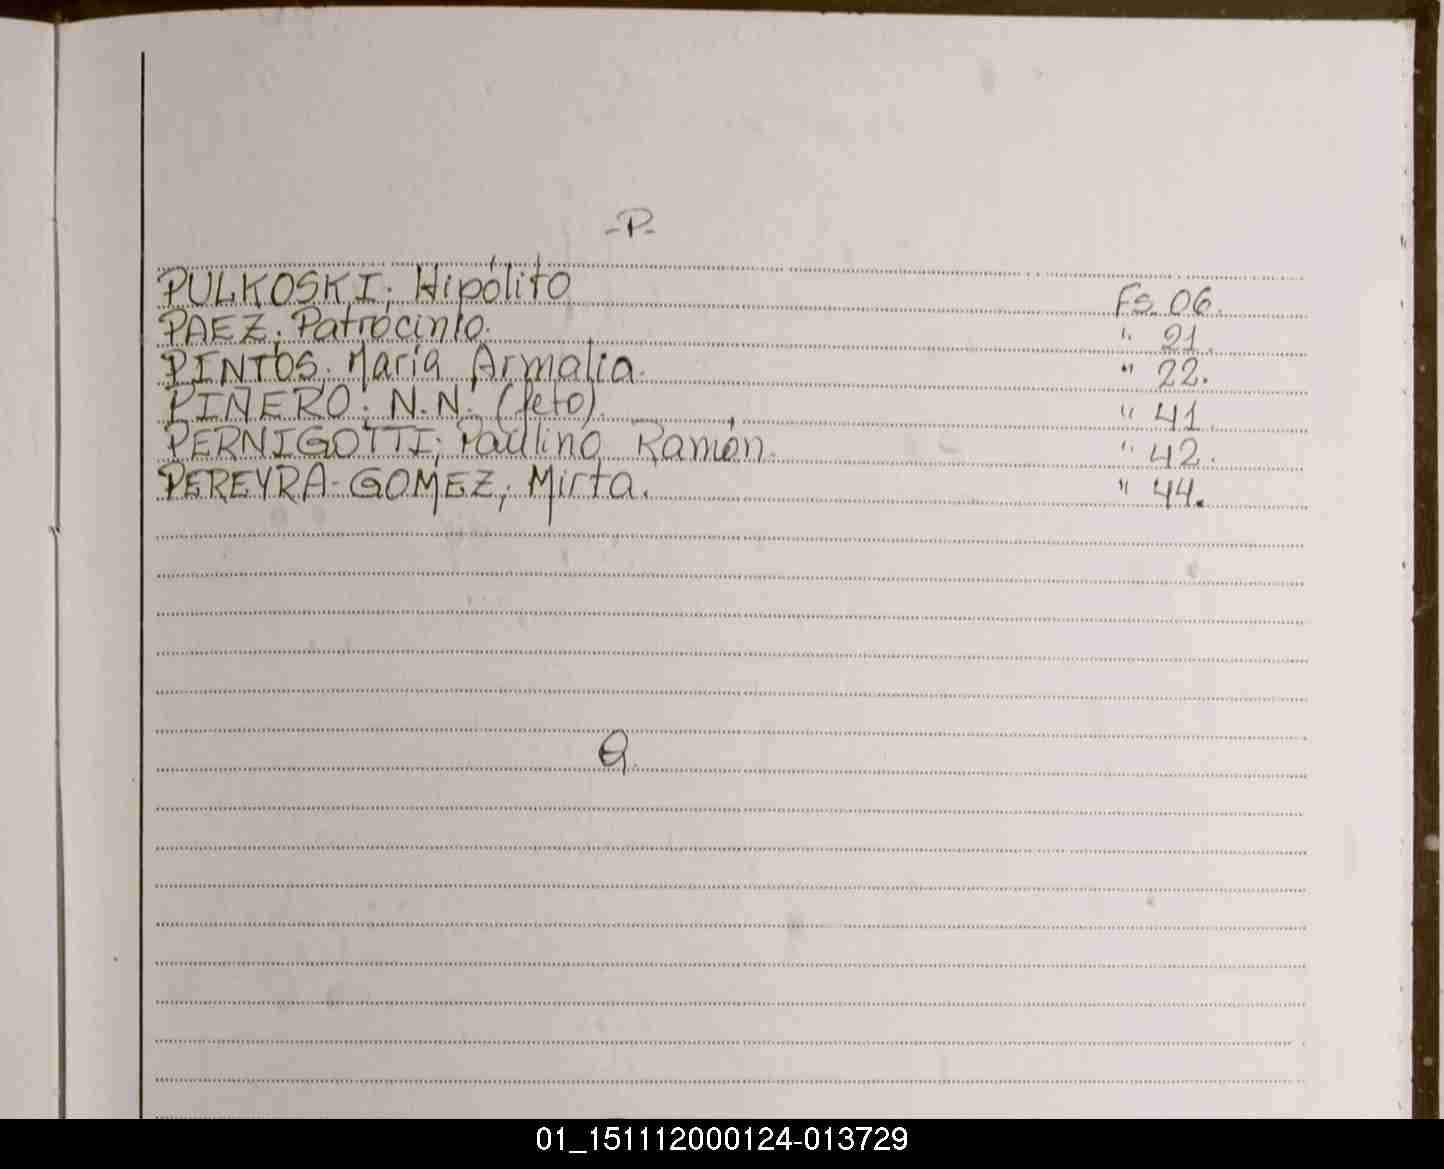 -P-
PULKOSKI; Hipólito Fs. 06.
PAEZ; Patrocinio. " 21.
PINTOS. María Armalia. " 22.
PIÑERO; N.N. (feto). " 41.
PERNIGOTTI; Paulino Ramón. " 42.
PEREYRA-GOMEZ; Mirta. " 44.
Q.
01_151112000124-013729